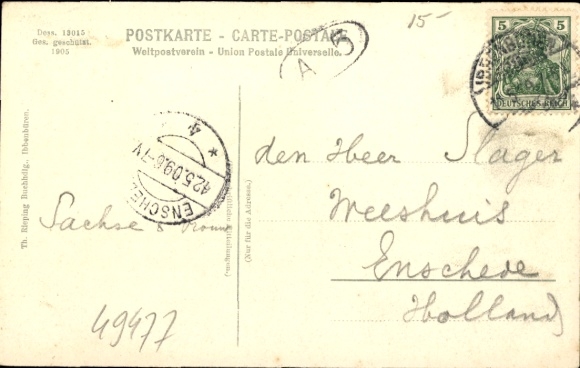 Doys. 13015
Ges. geschützt.
1905
POSTKARTE - CARTE-POSTALE
Weltpostverein - Union Postale Universelle.
15-
A 3
5 5
DEUTSCHES REICH
IBBENBÜREN
4
42.5.09.6-7V
ENSCHEDE
Th. Rieping Buchhdlg. Ibbenbüren.
(Nur für die Adresse.)
den Heer Slager
Weeshuis
Enschede
Holland
Sachse & Vrouw
49477